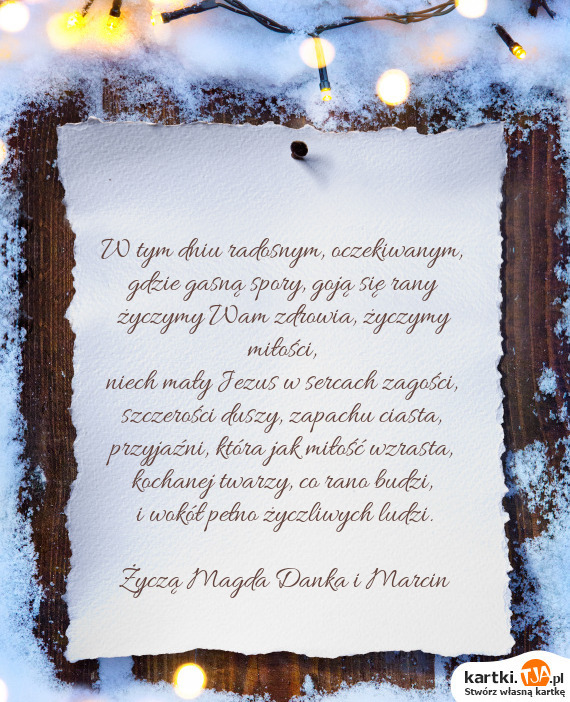 W tym dniu radosnym, oczekiwanym,
gdzie gasną spory, goją się rany
życzymy Wam zdrowia, życzymy
miłości,
niech mały Jezus w sercach zagości,
szczerości duszy, zapachu ciasta,
przyjaźni, która jak miłość wzrasta,
kochanej twarzy, co rano budzi,
i wokół pełno życzliwych ludzi.
Życzą Magda Danka i Marcin
kartki.TJA.pl
Stwórz własną kartkę